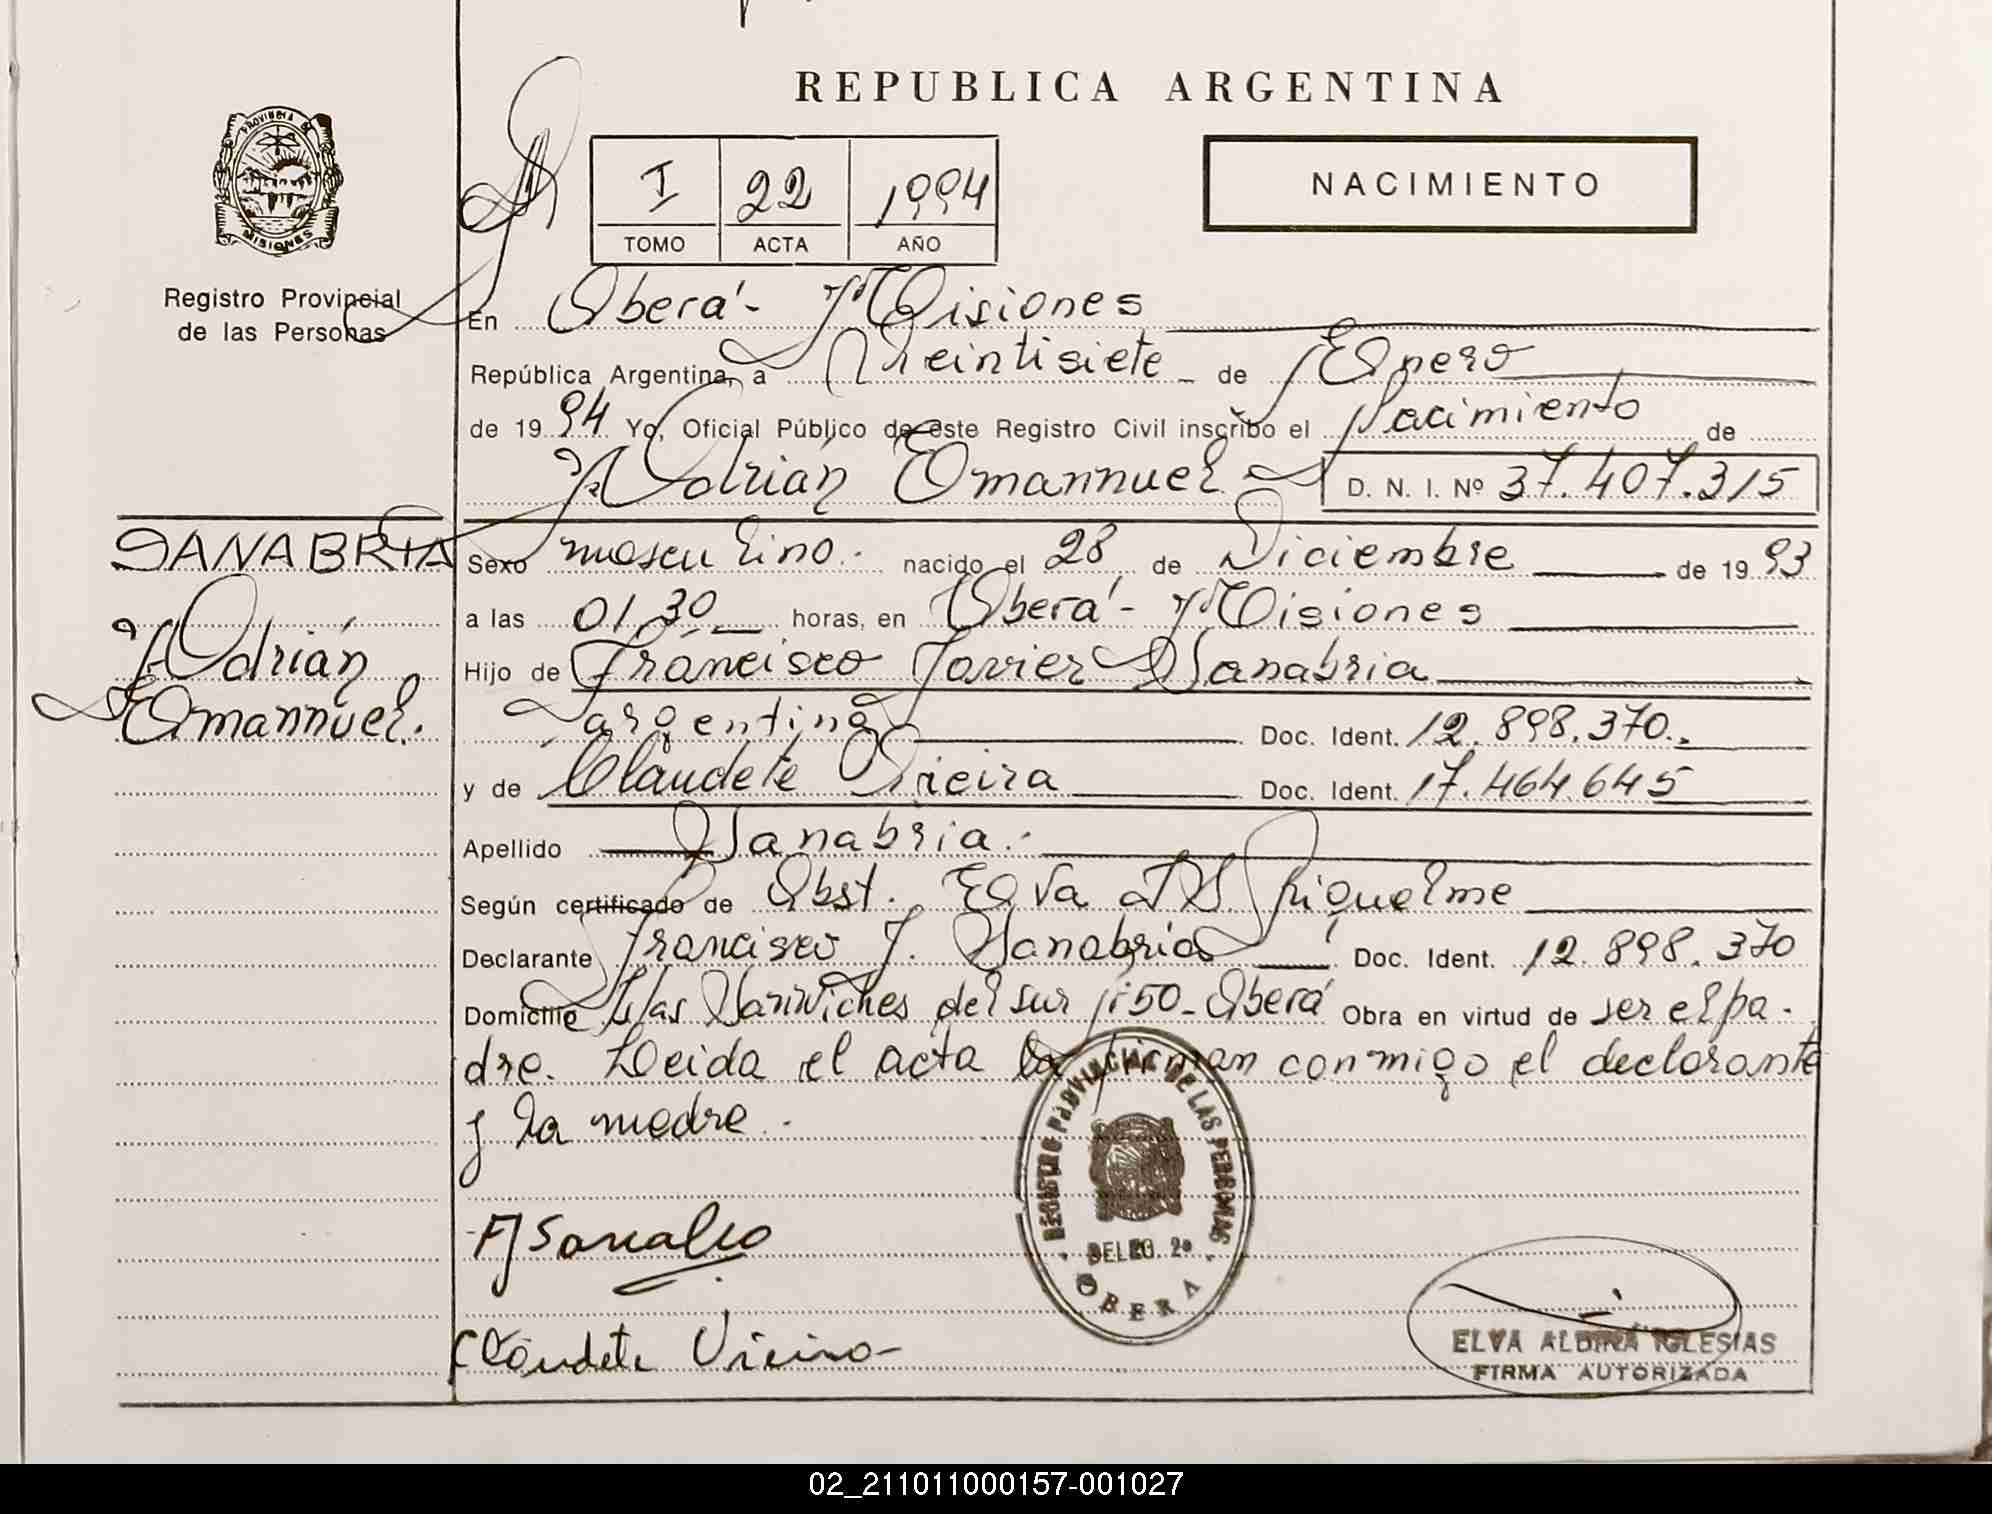 REPUBLICA ARGENTINA
PROVINCIA DE
MISIONES
Registro Provincial
de las Personas
I 22 1994
TOMO ACTA AÑO
NACIMIENTO
En Oberá - Misiones
República Argentina, a Veintisiete de Enero
de 1994 Yo, Oficial Público de este Registro Civil inscribo el Nacimiento de
Adrián Emannuel D. N. I. Nº 37.407.315
SANABRIA
Adrián
Emannuel.
Sexo masculino. nacido el 28 de Diciembre de 1993
a las 01,30 horas, en Oberá - Misiones
Hijo de Francisco Javier Sanabria
argentina Doc. Ident. 12.898.370.
y de Claudete Vieira Doc. Ident. 17.464.645
Apellido Sanabria.
Según certificado de Obst. Elva Riquelme
Declarante Francisco J. Sanabria Doc. Ident. 12.898.370
Domicilio Islas Sanwiches del sur 150 - Oberá Obra en virtud de ser el pa-
dre. Leida el acta la firman conmigo el declarante
y la madre.
REGISTRO PROVINCIAL DE LAS PERSONAS
DELEG. 2ª
OBERA
Claudete Vieira
ELVA ALDINA IGLESIAS
FIRMA AUTORIZADA
02_211011000157-001027